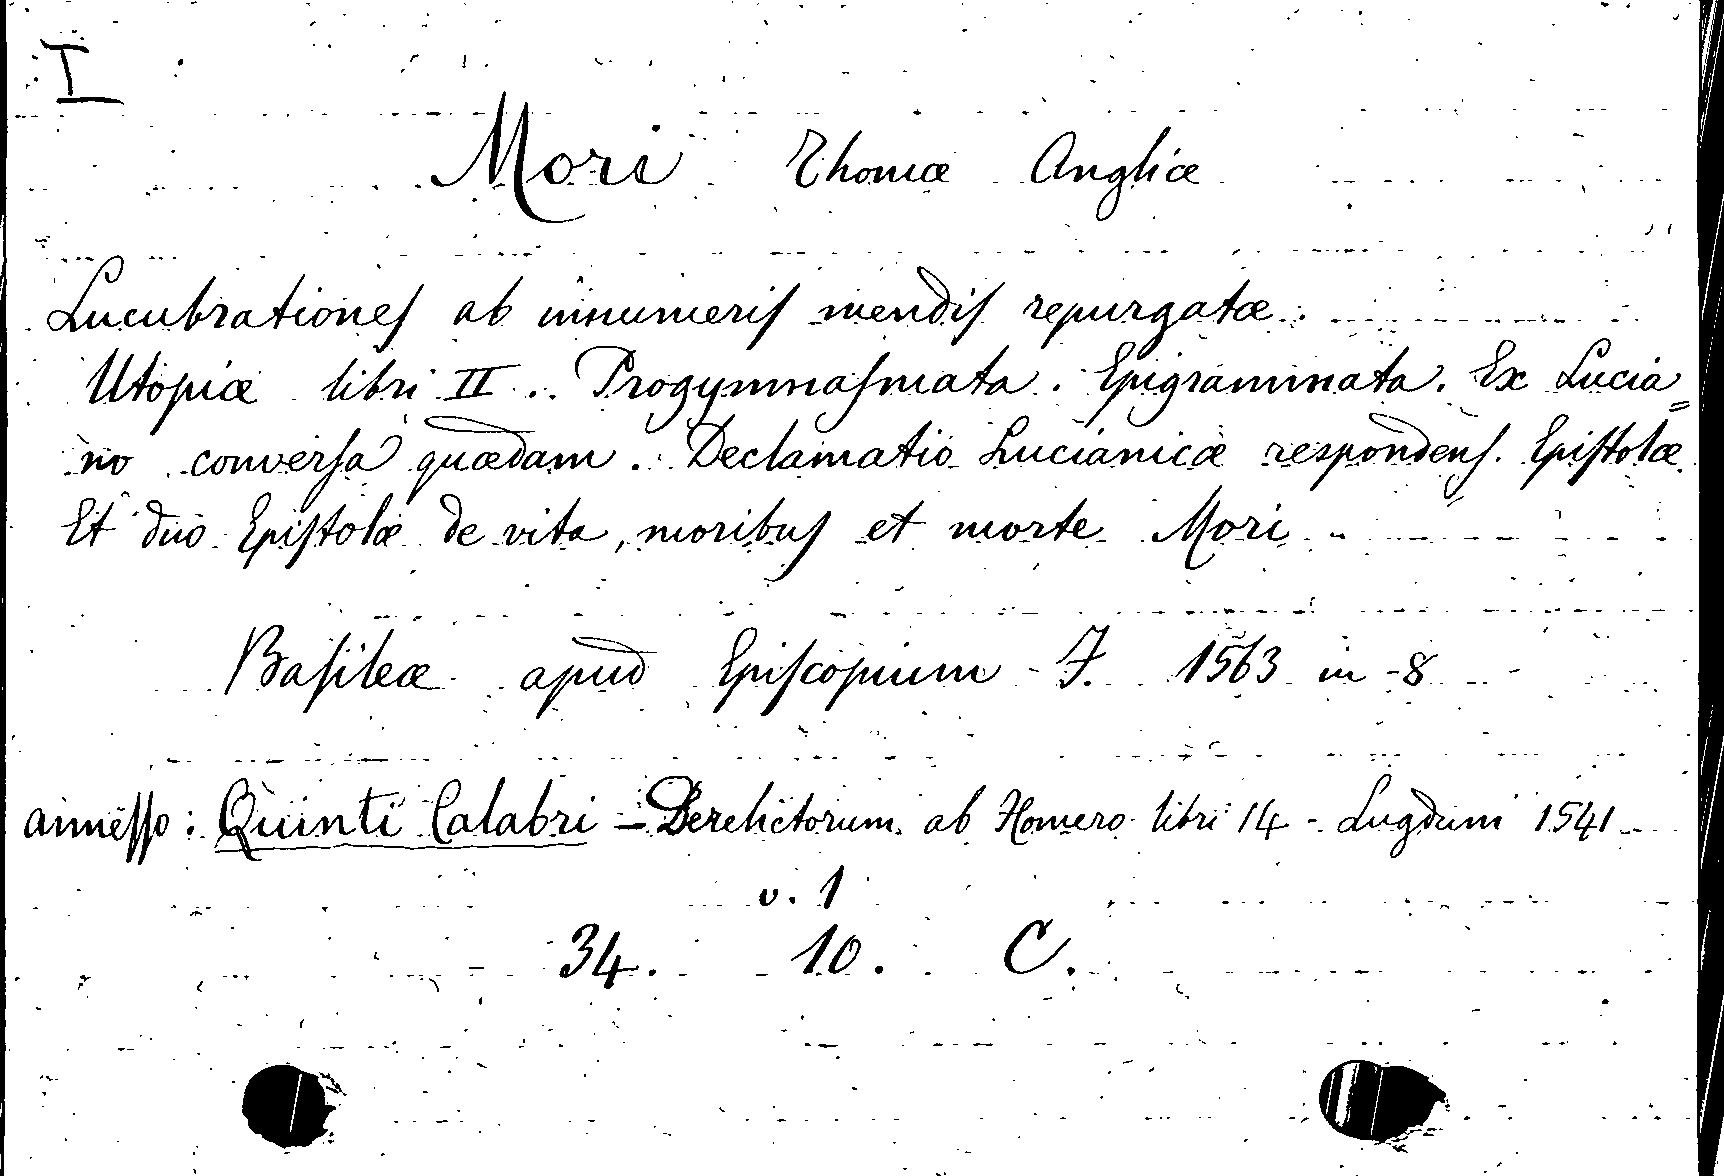 I
Mori Thomæ Angliæ
Lucubrationes ab innumeris mendis repurgatæ.
Utopiæ libri II.. Progymnasmata. Epigrammata. Ex Lucia=
no conversa quædam. Declamatio Lucianicæ respondens. Epistolæ
Et duo Epistolæ de vita, moribus et morte Mori
Basileæ apud Episcopium F. 1563 in-8
annesso: Quinti Calabri - Derelictorum ab Homero libri 14 - Lugduni 1541
v. 1
34. 10. C.